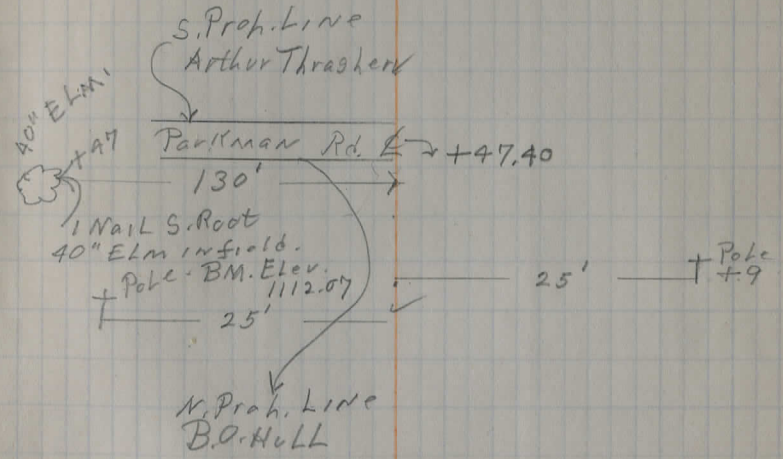 S. Prop. Line
Arthur Thrasher
40" ELM.
+47
Parkman Rd. ℄ +47.40
130'
1 Nail S. Root
40" Elm in field.
Pole - BM. Elev.
1112.07
25'
25'
Pole
+.9
N. Prop. Line
B.O. Hull